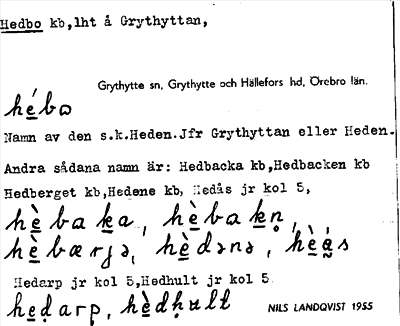 Hedbo kb,lht å Grythyttan,
Grythytte sn, Grythytte och Hällefors hd, Örebro län.
hé̲bɷ
Namn av den s.k.Heden.Jfr Grythyttan eller Heden.
Andra sådana namn är: Hedbacka kb,Hedbacken kb
Hedberget kb,Hedene kb, Hedås jr kol 5,
hè̲baka, hè̲bakn̥,
hè̲bærjə, hè̲dənə,
Hedarp jr kol 5,Hedhult jr kol 5
NILS LANDQVIST 1955